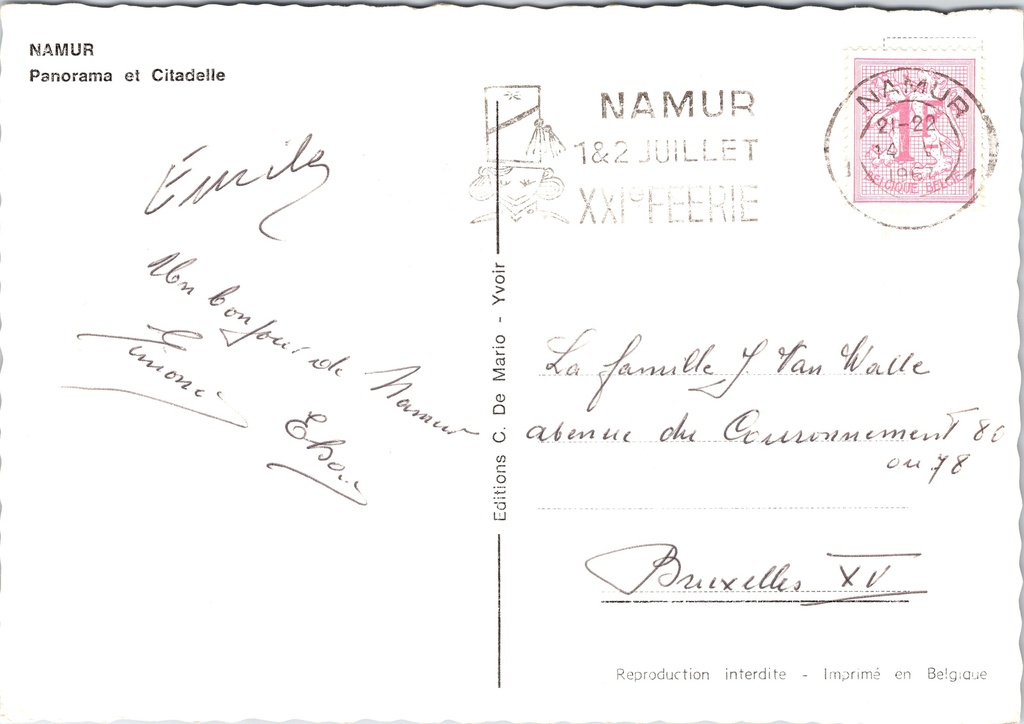 NAMUR
Panorama et Citadelle
NAMUR
1&2 JUILLET
XXIe FEERIE
NAMUR
21-22
14
1967
1F
BELGIQUE BELGIE
Emily
Un bonjour de Namur
Simone
Editions C. De Mario - Yvoir
La famille J. Van Walle
avenue du Couronnement 80
ou 78
Bruxelles XV
Reproduction interdite - Imprimé en Belgique